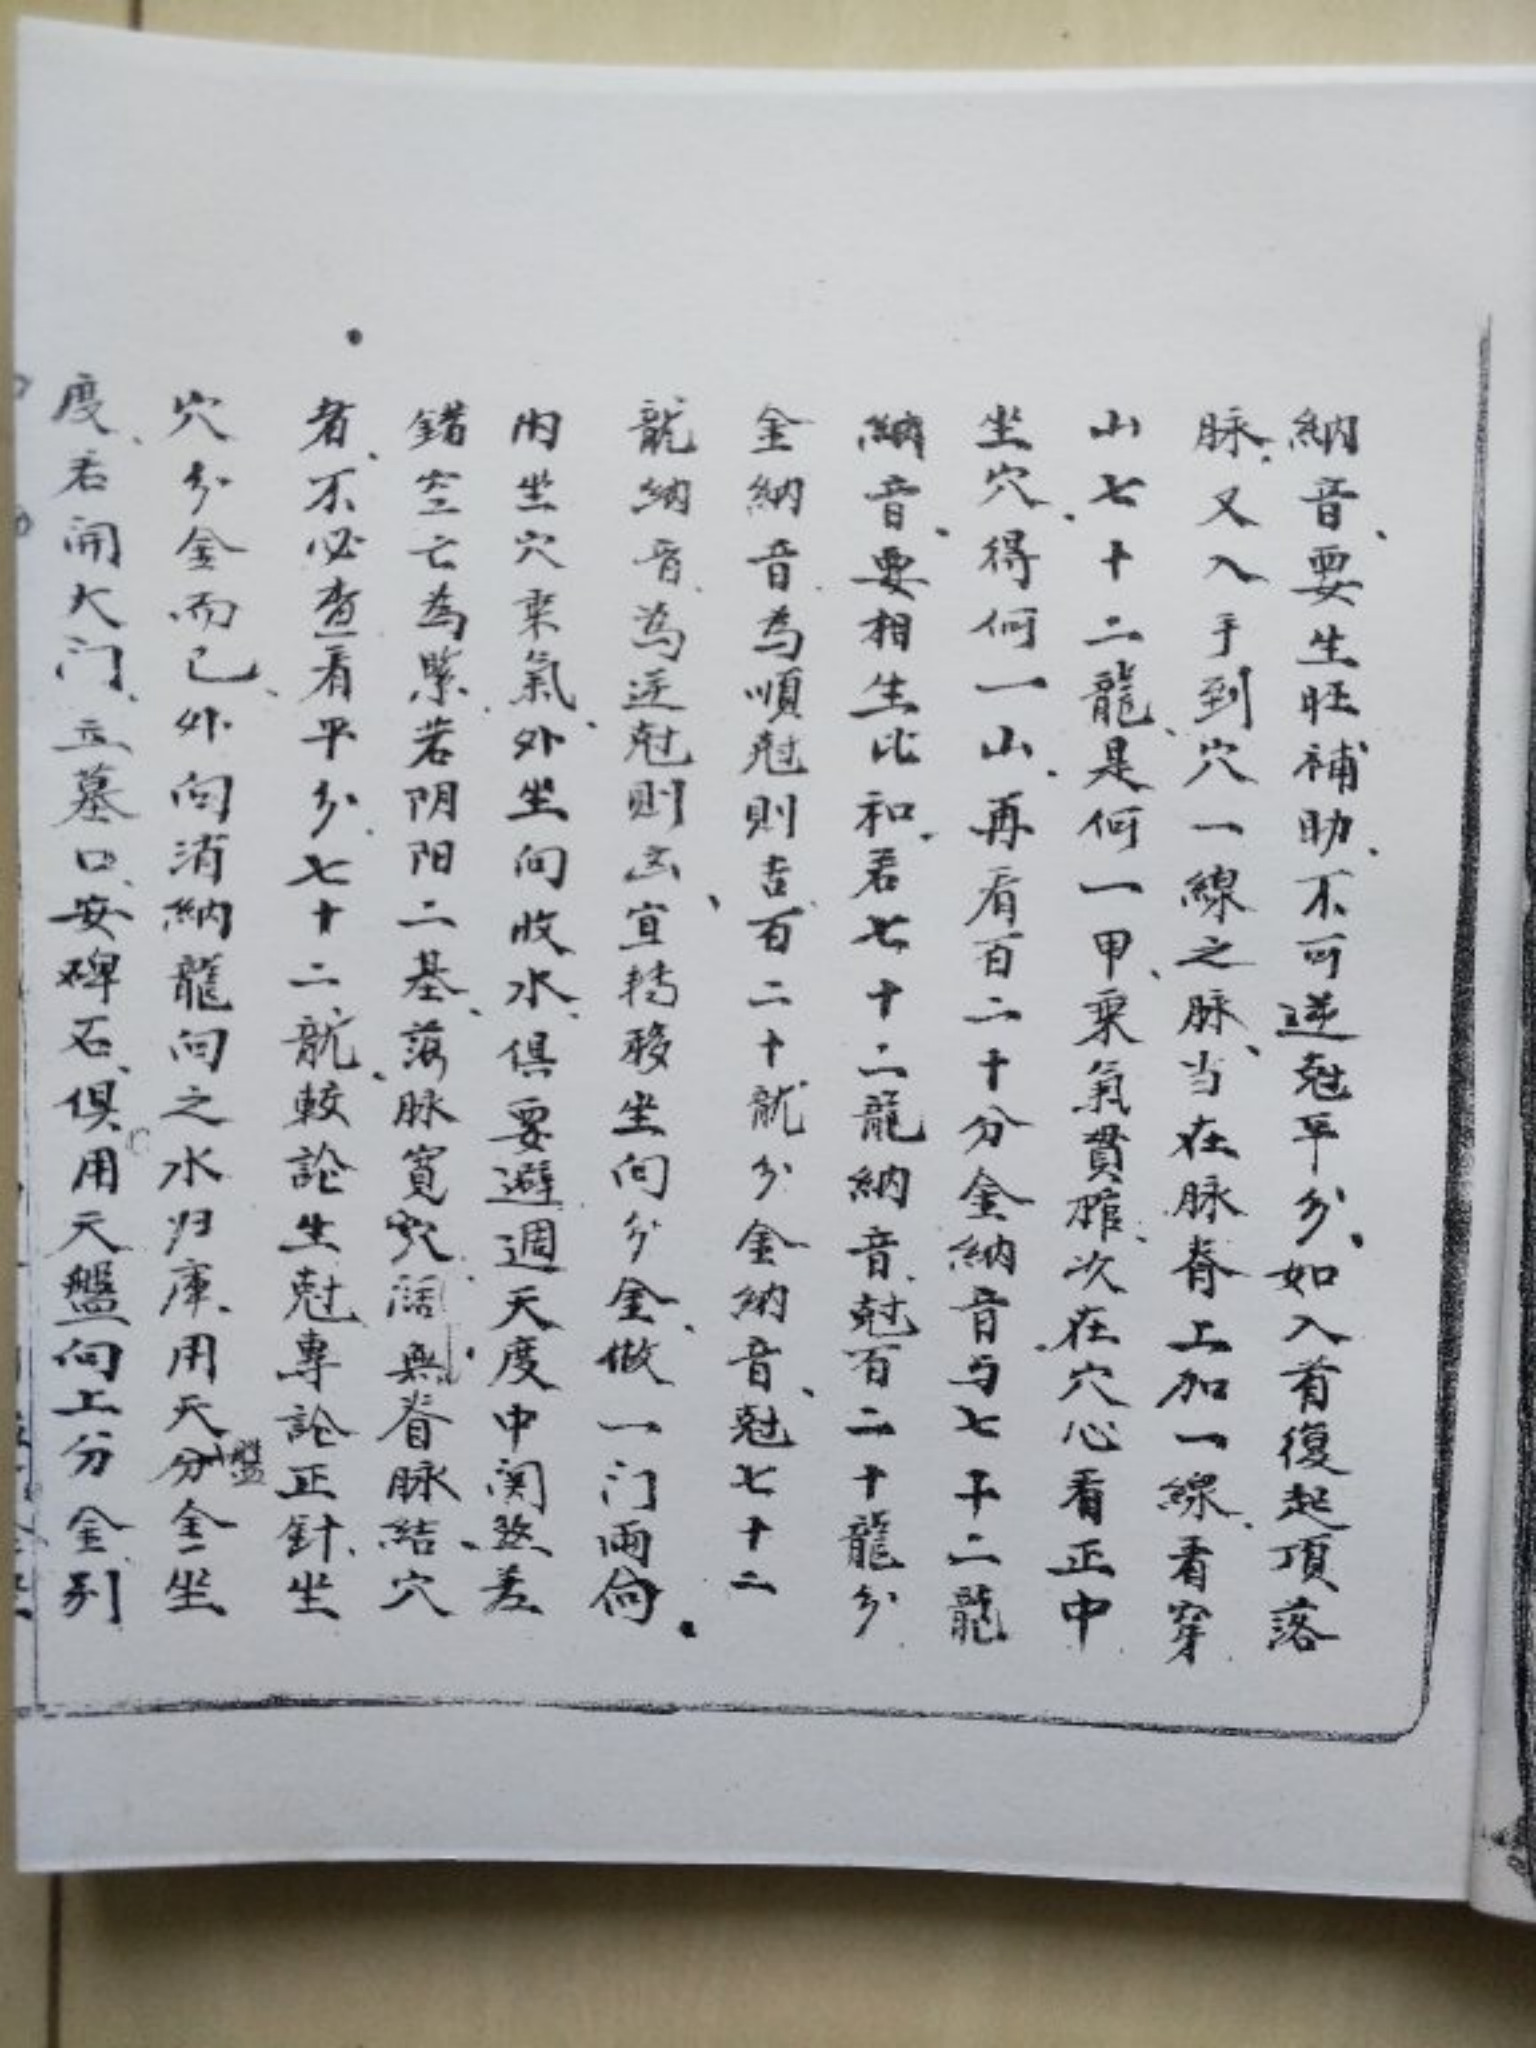 納音、要生旺補助、不可逆尅平分、如入首復起頂落
脉、又入手到穴一線之脉、当在脉脊上加一線、看穿
山七十二龍、是何一甲、乘氣貫棺、次在穴心看正中
坐穴、得何一山、再看百二十分金納音与七十二龍
納音、要相生比和、若七十二龍納音、尅百二十龍分
金納音為順尅則吉、百二十龍分金納音、尅七十二
龍納音、為逆尅則凶、宜轉移坐向分金、做一门兩向
内坐穴乘氣、外坐向收水、俱要避週天度中関煞差
錯空亡為緊、若阴阳二基、落脉寬穴濶無脊脉、結穴
者、不必查看平分、七十二龍、較論生尅專論正針、坐
穴分金而已、外向消納龍向之水归庫、用天盤分金坐
度、若開大门、立墓口、安碑石、俱用天盤向上分金、别